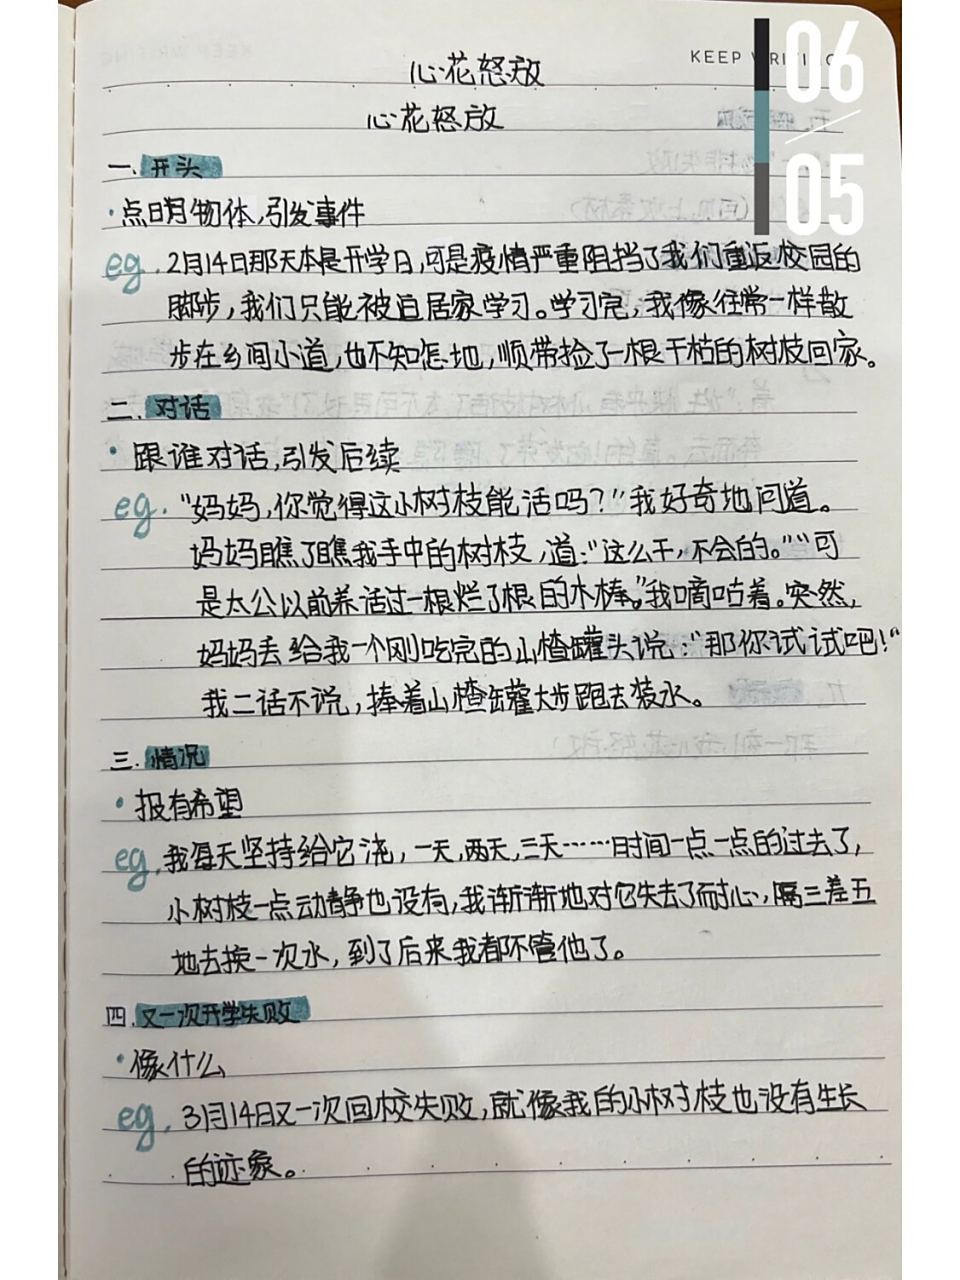 KEEP WRITING
06
05
心花怒放
心花怒放
一.开头
·点明物体,引发事件
eg.2月14日那天本是开学日,可是疫情严重阻挡了我们重返校园的
脚步,我们只能被迫居家学习。学习完,我像往常一样散
步在乡间小道,也不知怎地,顺带捡了一根干枯的树枝回家。
二.对话
·跟谁对话,引发后续
eg."妈妈,你觉得这小树枝能活吗?"我好奇地问道。
妈妈瞧了瞧我手中的树枝,道:"这么干,不会的。""可
是太公以前养活过一根烂了根的木棒。"我嘀咕着。突然,
妈妈丢给我一个刚吃完的山楂罐头说:"那你试试吧!"
我二话不说,捧着山楂罐大步跑去装水。
三.情况
·报有希望
eg.我每天坚持给它浇,一天,两天,三天……时间一点一点的过去了,
小树枝一点动静也没有,我渐渐地对它失去了耐心,隔三差五
地去换一次水,到了后来我都不管他了。
四.又一次开学失败
·像什么
eg.3月14日又一次回校失败,就像我的小树枝也没有生长
的迹象。